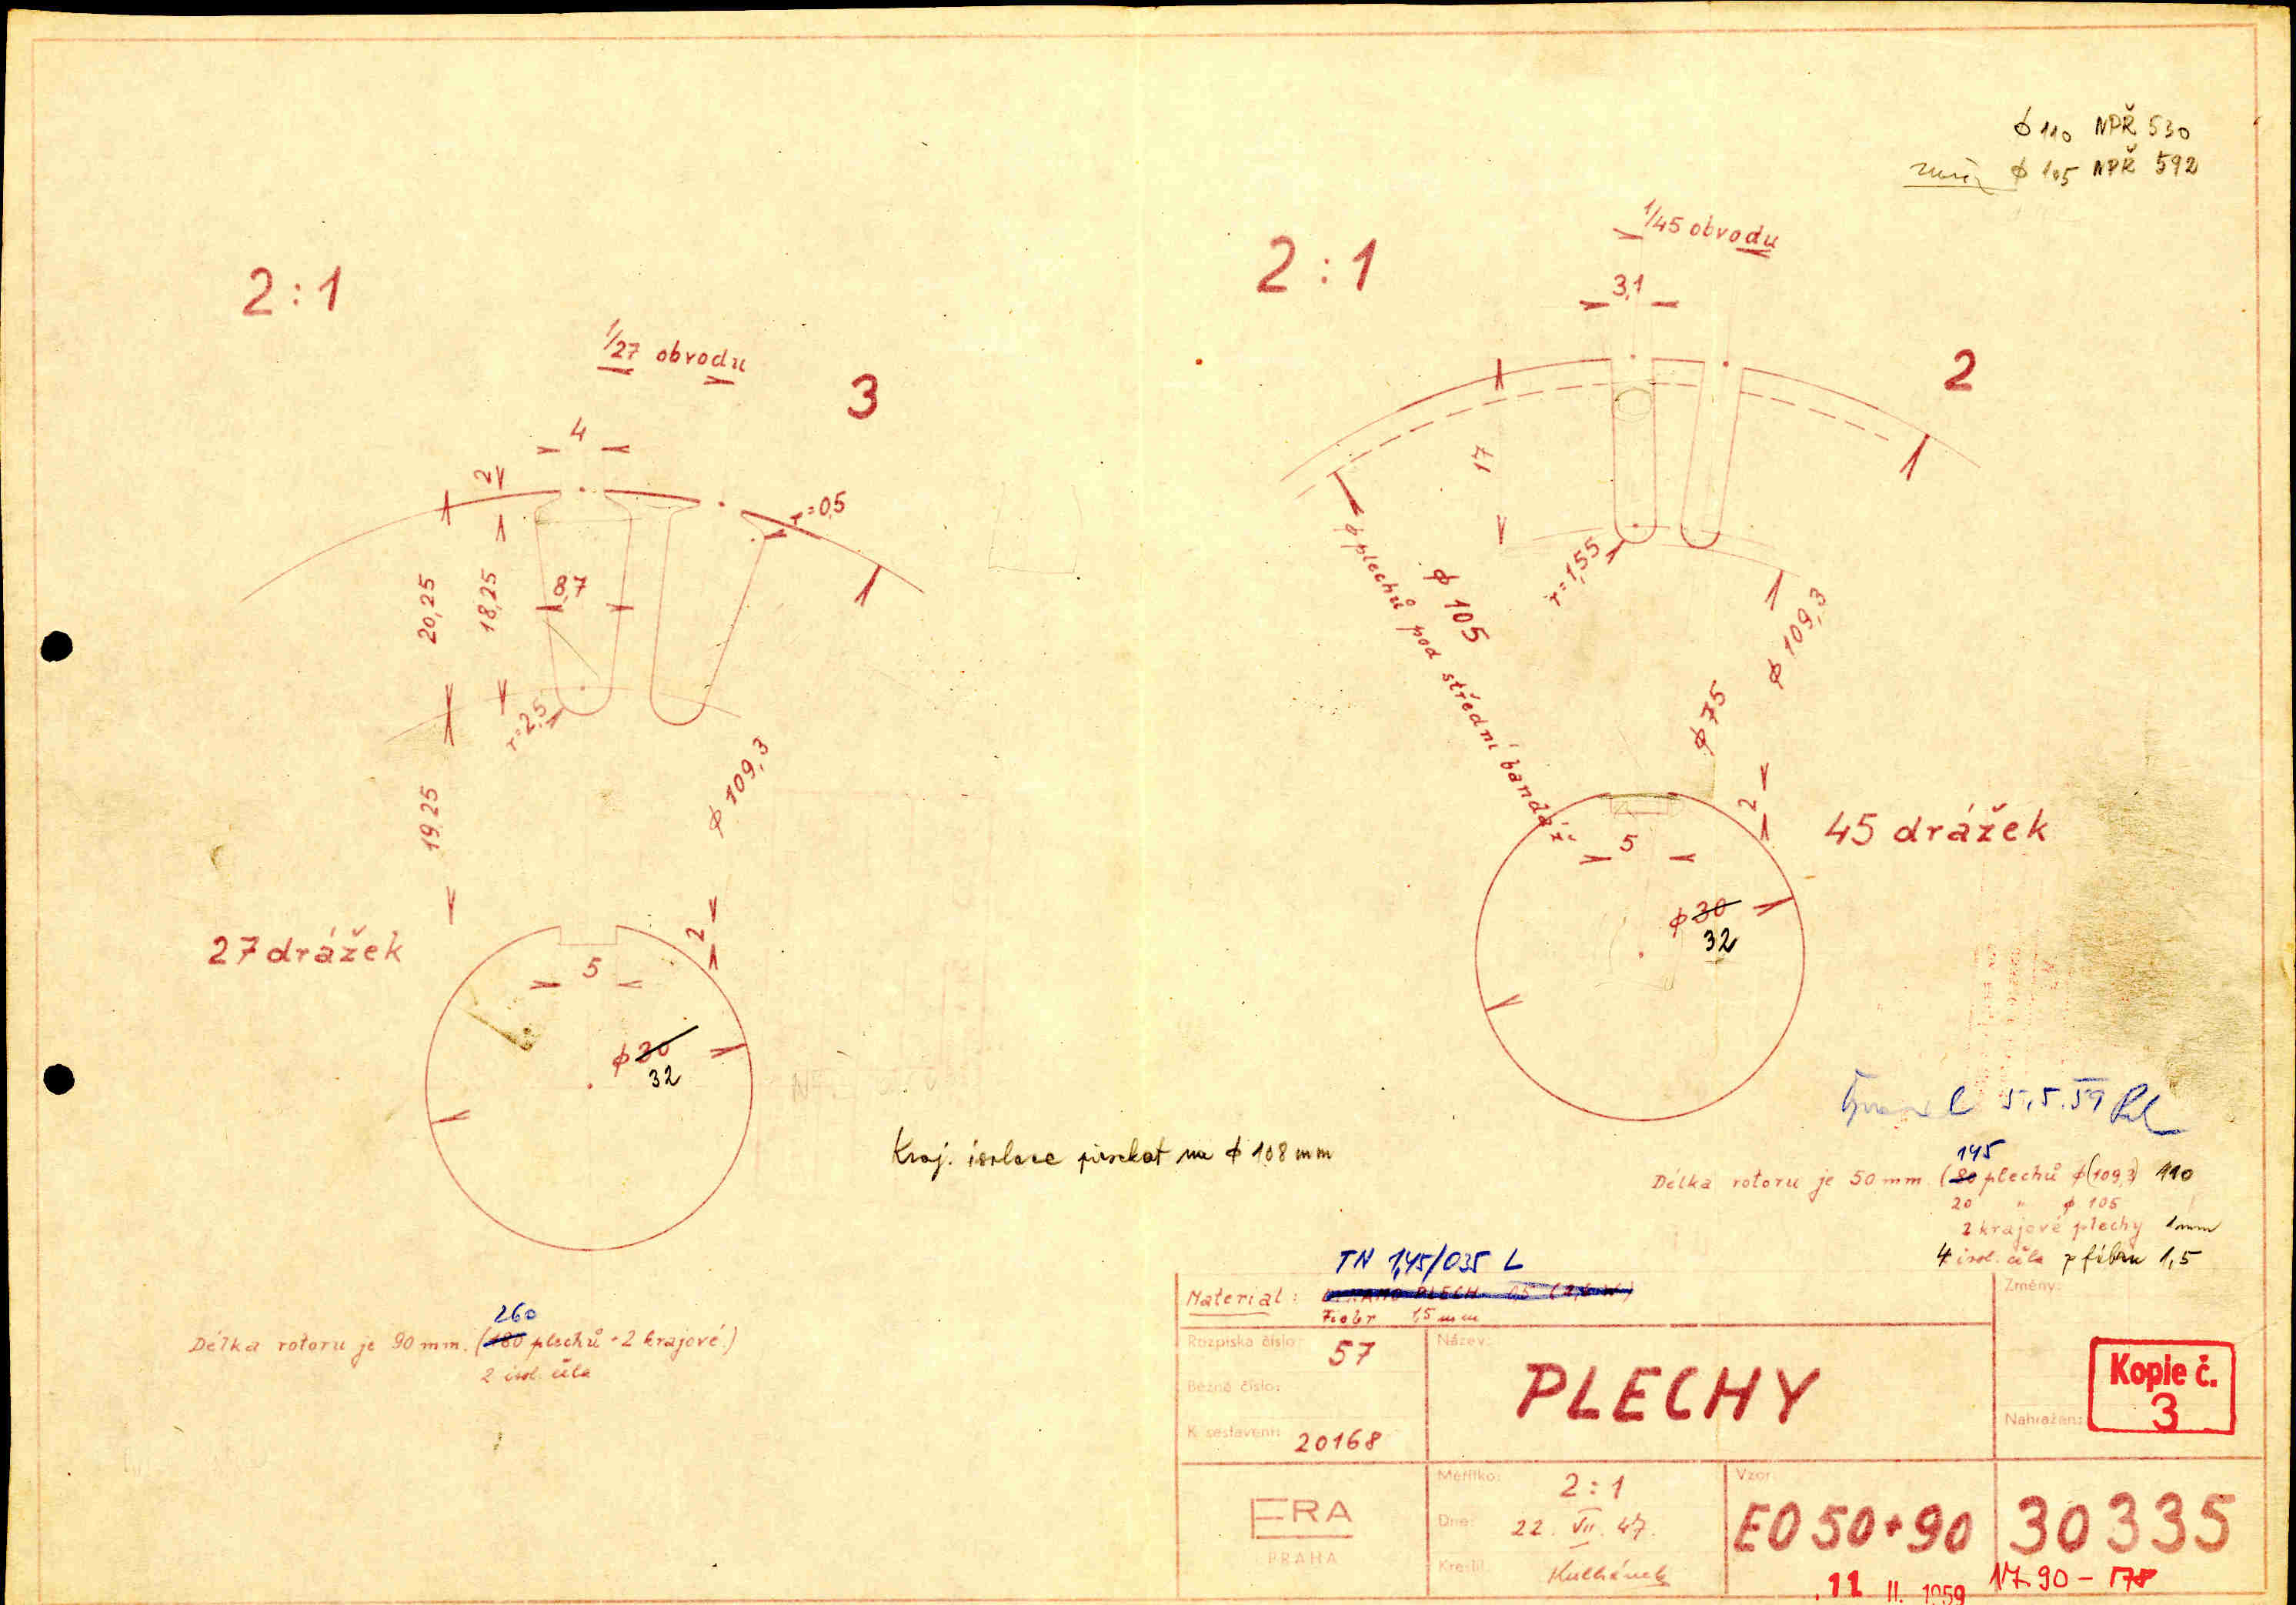 φ 110 NPŘ 530
φ 105 NPŘ 592
2:1
1/27 obvodu
3
4
2
r=0,5
20,25
18,25
8,7
r=2,5
19,25
φ 109,3
27 drážek
2
5
φ 30
32
2:1
1/45 obvodu
3,1
2
17
r=1,55
φ plechů pod střední bandáž
φ 105
φ 109,3
φ 75
2
5
45 drážek
φ 30
32
Kraj. isolace na φ 108 mm
5.5.59
145
Délka rotoru je 50 mm. (80 plechů φ(109,3) 110
20 " φ 105
2 krajové plechy 1mm
4 isol. čela z fíbru 1,5
260
Délka rotoru je 90 mm. (180 plechů + 2 krajové.)
2 isol. čela
TN 1,45/035 L
Material: DYNAMO PLECH 0,5
Fiobr 1,5 mm
Změny:
Rozpiska číslo: 57
Název:
PLECHY
Běžné číslo:
K sestavení: 20168
Nahrazen:
Kopie č.
3
ERA
PRAHA
Měřítko: 2:1
Dne: 22. VII. 47.
Kreslil: Kulhánek
Vzor:
EO 50+90
30335
11 II. 1959
17-90-178